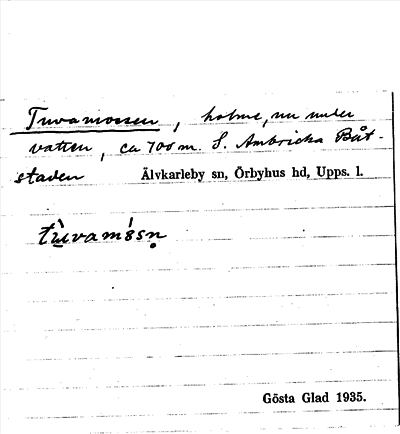 Tuvamossen, holme, nu under
vatten, ca 700 m. S. Ambricka Båt-
staden Älvkarleby sn, Örbyhus hd, Upps. l.
tùvam'8sn̥
Gösta Glad 1935.